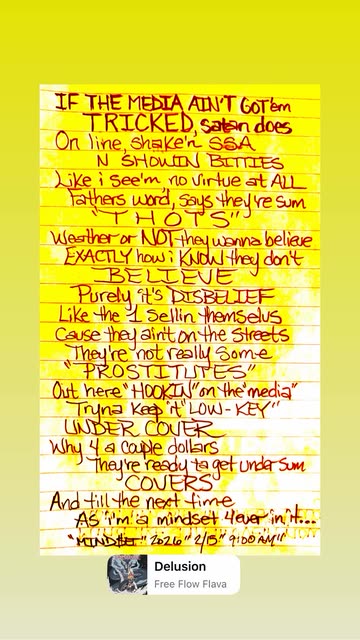 IF THE MEDIA AIN'T GOT'em
TRICKED, satan does
On line, shake'n SSA
N SHOWIN BITTIES
Like i see'm, no virtue at ALL
Fathers word, says they're sum
"THOTS"
Weather or NOT they wanna believe
EXACTLY how i KNOW they don't
BELIEVE
Purely it's DISBELIEF
Like the 1 Sellin themselvs
Cause they ain't on the streets
They're not really some
"PROSTITUTES"
Out here "HOOKIN" on the "media"
Tryna keep "it" LOW-KEY"
UNDER COVER
Why 4 a couple dollars
They're ready to get under sum
COVERS
And till the next time
As i'm a mindset 4ever in it...
"MINDSET" 2026" 2/15" 9:00 AM"
Delusion
Free Flow Flava